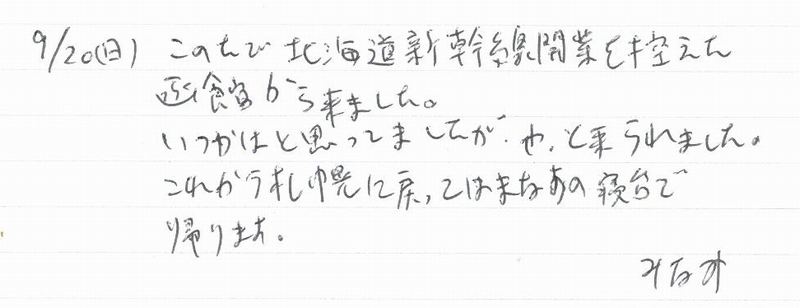 9/20(日) このたび北海道新幹線開業を控えた
函館から来ました。
いつかはと思ってましたが、やっと来られました。
これから札幌に戻ってはまなすの寝台で
帰ります。